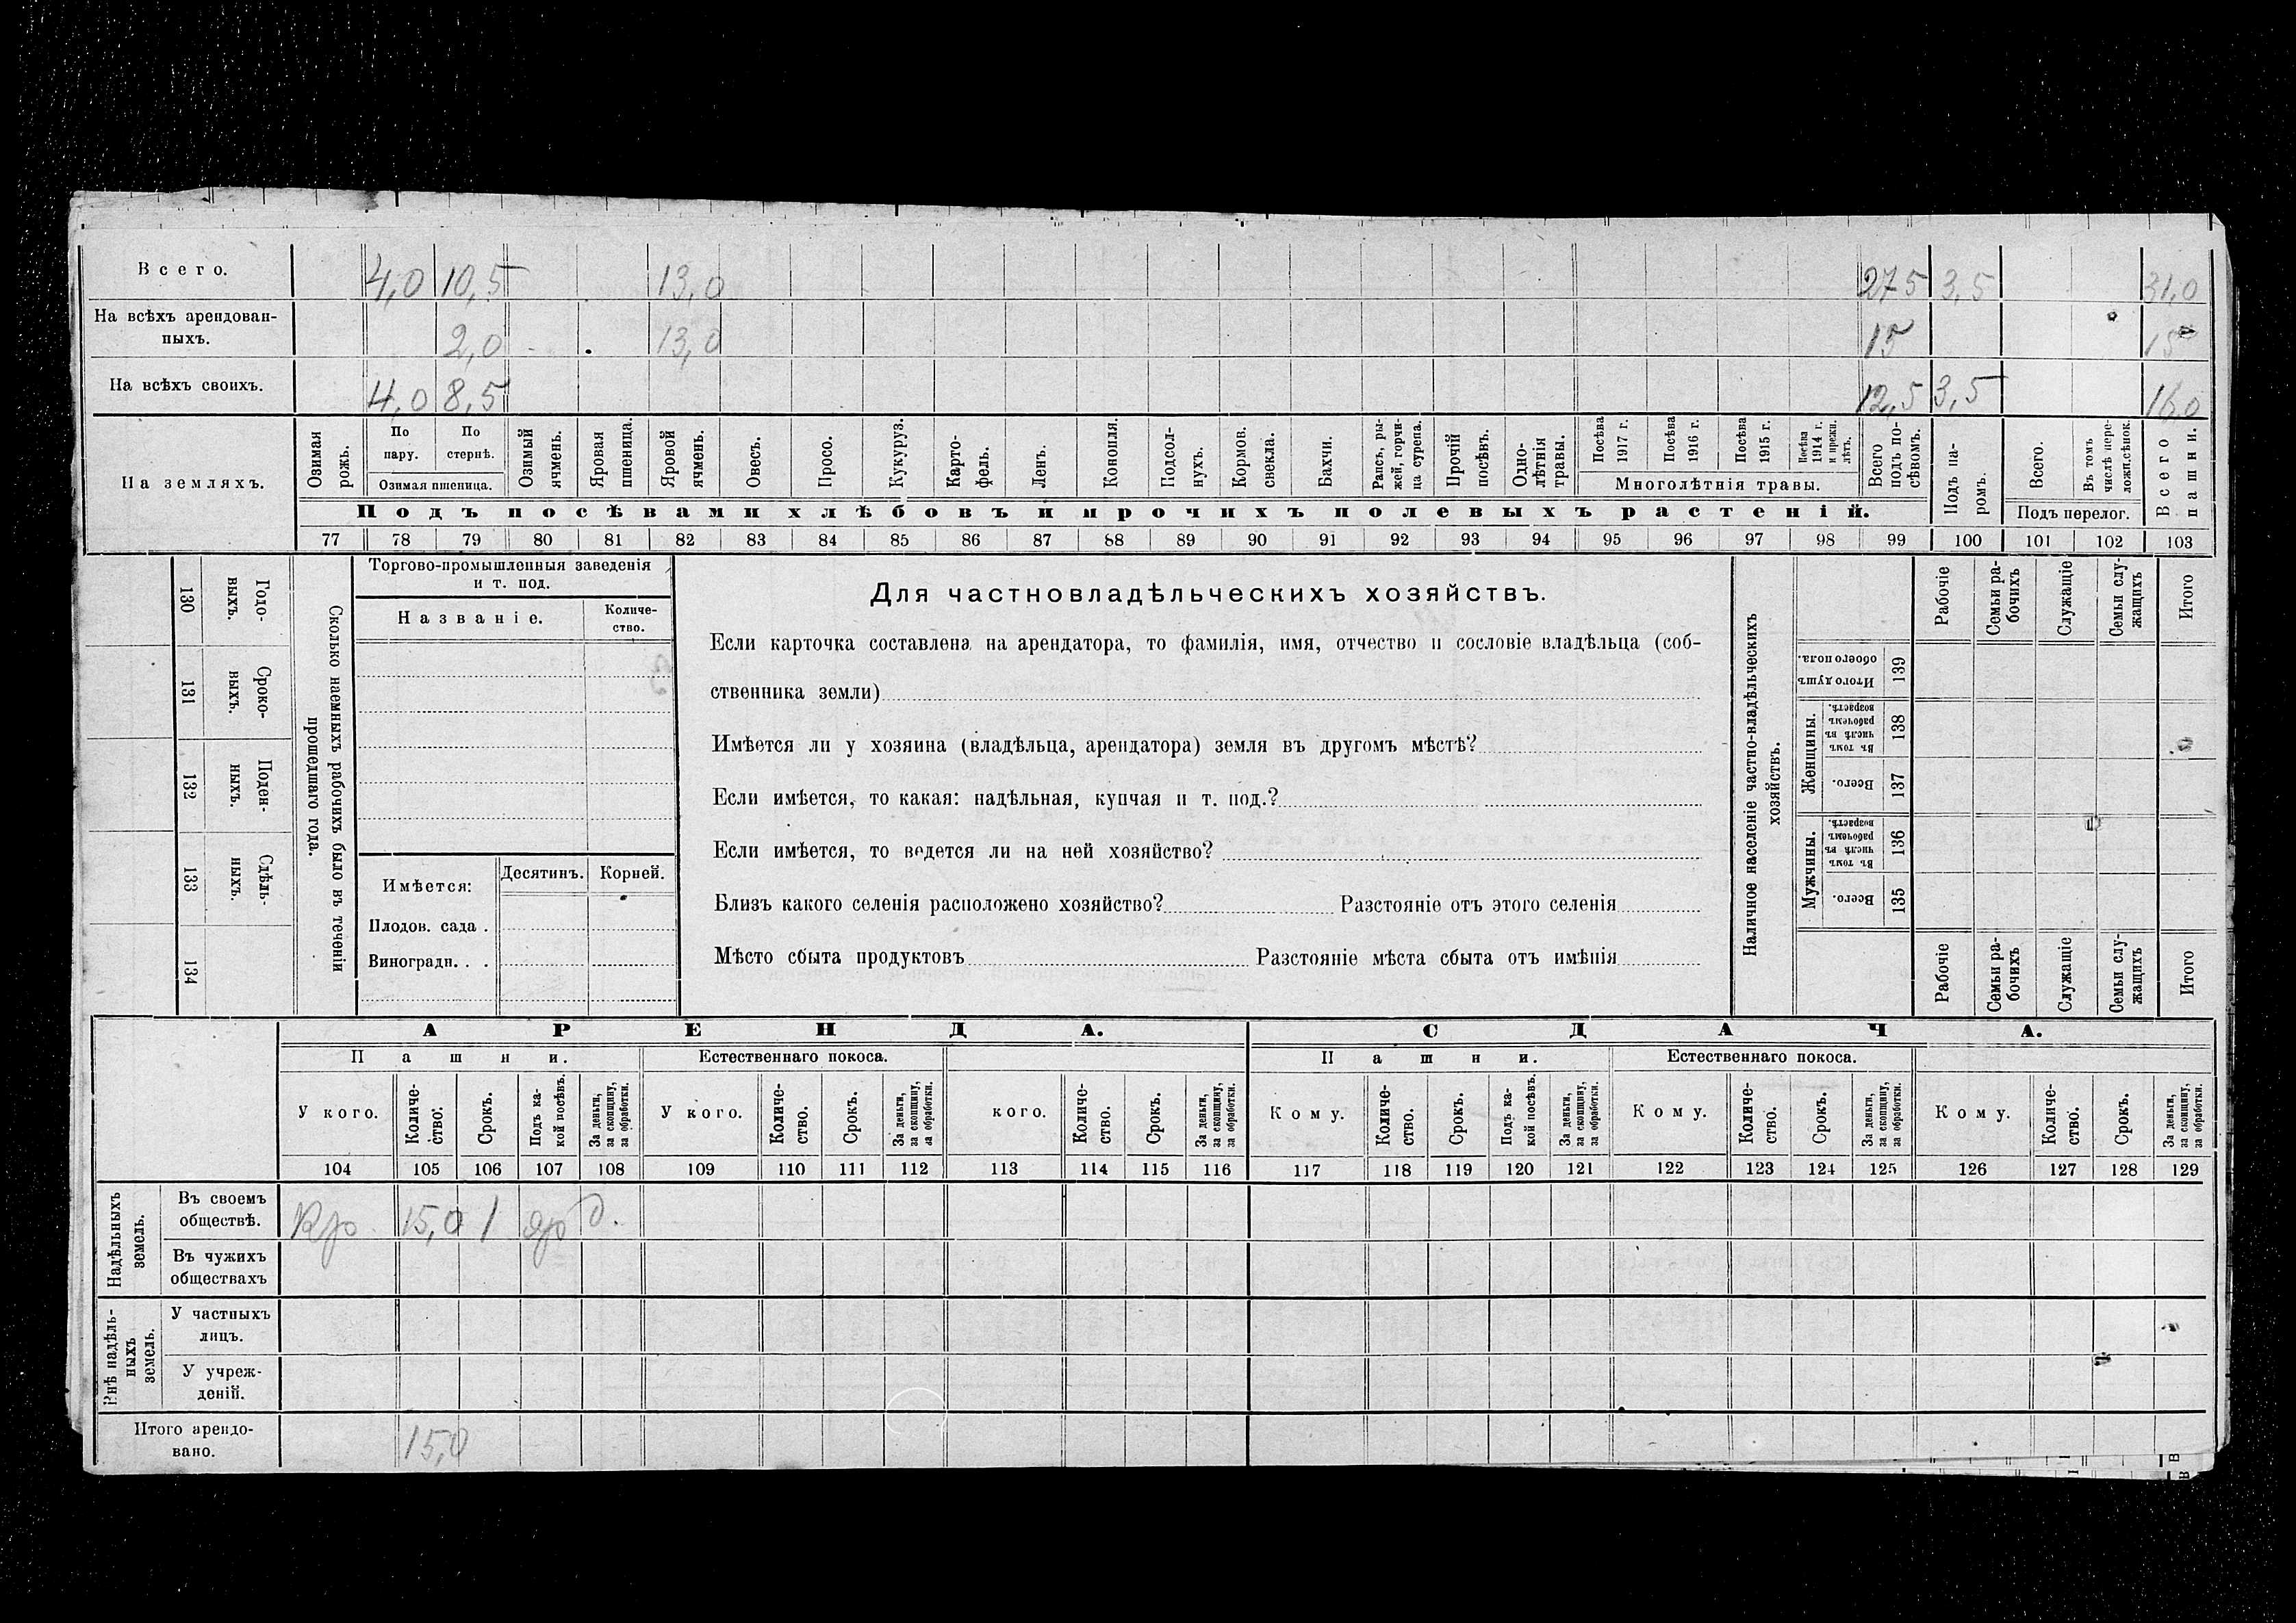 Всего. 4,0 10,5 13,0 27 5 3,5 31,0
На всѣхъ арендован-
ныхъ. 2,0 13,0 15 15
На всѣхъ своихъ. 4,0 8,5 12,5 3,5 16,0
На земляхъ.
Озимая рожь.
По пару.
По стернѣ.
Озимая пшеница.
Озимый ячмень.
Яровая пшеница.
Яровой ячмень.
Овесъ.
Просо.
Кукуруз.
Карто-
фель.
Ленъ.
Конопля.
Подсол-
нухъ.
Кормов. свекла.
Бахчи.
Рапсъ, ры-
жей, горчи-
ца сурепа.
Прочій посѣвъ.
Одно-
лѣтнія травы.
Посѣва 1917 г.
Посѣва 1916 г.
Посѣва 1915 г.
Посѣва 1914 г. и прежн. лѣтъ.
Многолѣтнія травы.
Всего подъ по-
сѣвомъ.
Подъ па-
ромъ.
Всего.
Въ томъ числѣ пере-
ложн.сѣнок.
Подъ перелог.
Всего пашни.
Подъ посѣвами хлѣбовъ и прочихъ полевыхъ растеній.
77 78 79 80 81 82 83 84 85 86 87 88 89 90 91 92 93 94 95 96 97 98 99 100 101 102 103
130 Годо-
выхъ.
131 Сроко-
выхъ.
132 Поден-
ныхъ.
133 Сдѣль-
ныхъ.
134
Сколько наемныхъ рабочихъ было въ теченіи
прошедшаго года.
Торгово-промышленныя заведенія
и т. под.
Названіе.
Количе-
ство.
Имѣется:
Десятинъ.
Корней.
Плодов. сада .
Виноградн. . .
Для частновладѣльческихъ хозяйствъ.
Если карточка составлена на арендатора, то фамилія, имя, отчество и сословіе владѣльца (соб-
ственника земли)
Имѣется ли у хозяина (владѣльца, арендатора) земля въ другомъ мѣстѣ?
Если имѣется, то какая: надѣльная, купчая и т. под.?
Если имѣется, то ведется ли на ней хозяйство?
Близъ какого селенія расположено хозяйство? Разстояніе отъ этого селенія
Мѣсто сбыта продуктовъ Разстояніе мѣста сбыта отъ имѣнія
Наличное населеніе частно-владѣльческихъ
хозяйствъ.
Рабочіе
Семьи ра-
бочихъ
Служащіе
Семьи слу-
жащихъ
Итого
Итого душъ обоего пола. 139
Женщины.
Въ томъ числѣ въ рабочемъ возрастѣ. 138
Всего. 137
Мужчины.
Въ томъ числѣ въ рабочемъ возрастѣ. 136
Всего. 135
Рабочіе
Семьи ра-
бочихъ
Служащіе
Семьи слу-
жащихъ
Итого
АРЕНДА.
СДАЧА.
Пашни.
Естественнаго покоса.
Пашни.
Естественнаго покоса.
У кого.
Количе-
ство.
Срокъ.
Подъ ка-
кой посѣвъ.
За деньги, за скопщину, за обработки.
У кого.
Количе-
ство.
Срокъ.
За деньги, за скопщину, за обработки.
кого.
Количе-
ство.
Срокъ.
За деньги, за скопщину, за обработки.
Кому.
Количе-
ство.
Срокъ.
Подъ ка-
кой посѣвъ.
За деньги, за скопщину, за обработки.
Кому.
Количе-
ство.
Срокъ.
За деньги, за скопщину, за обработки.
Кому.
Количе-
ство.
Срокъ.
За деньги, за скопщину, за обработки.
104 105 106 107 108 109 110 111 112 113 114 115 116 117 118 119 120 121 122 123 124 125 126 127 128 129
Надѣльныхъ земель.
Въ своемъ
обществѣ. Кр. 15,0 1 яр д.
Въ чужихъ
обществахъ
Внѣ надѣль-
ныхъ земель.
У частныхъ
лицъ.
У учреж-
деній.
Итого арендо-
вано. 15,0